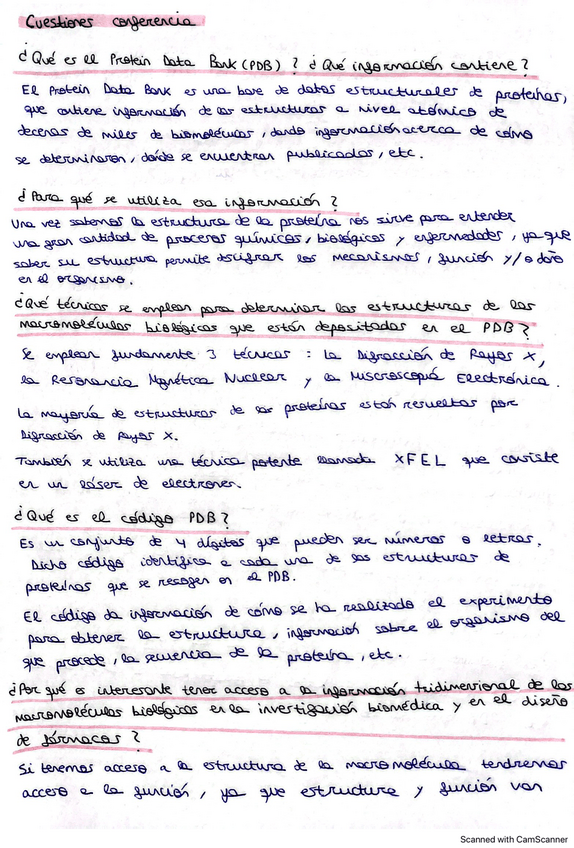 Cuestiones conferencia
¿Qué es el Protein Data Bank (PDB)? ¿Qué información contiene?
El Protein Data Bank es una base de datos estructurales de proteínas,
que contiene información de las estructuras a nivel atómico de
decenas de miles de biomoléculas, dando información acerca de cómo
se determinaron, dónde se encuentran publicadas, etc.
¿Para qué se utiliza esa información?
Una vez sabemos la estructura de la proteína nos sirve para entender
una gran cantidad de procesos químicos, biológicos y enfermedades, ya que
saber su estructura permite descifrar los mecanismos, función y/o daño
en el organismo.
¿Qué técnicas se emplean para determinar las estructuras de las
macromoléculas biológicas que están depositadas en el PDB?
Se emplean fundamente 3 técnicas: la Difracción de Rayos X,
la Resonancia Magnética Nuclear y la Miscroscopía Electrónica.
La mayoría de estructuras de las proteínas están resueltas por
Difracción de Rayos X.
También se utiliza una técnica potente llamada XFEL que consiste
en un láser de electrones.
¿Qué es el código PDB?
Es un conjunto de 4 dígitos que pueden ser números o letras.
Dicho código identifica a cada una de las estructuras de
proteínas que se recogen en el PDB.
El código da información de cómo se ha realizado el experimento
para obtener la estructura, información sobre el organismo del
que procede, la secuencia de la proteína, etc.
¿Por qué es interesante tener acceso a la información tridimensional de las
macromoléculas biológicas en la investigación biomédica y en el diseño
de fármacos?
Si tenemos acceso a la estructura de la macromolécula tendremos
acceso a la función, ya que estructura y función van
Scanned with CamScanner